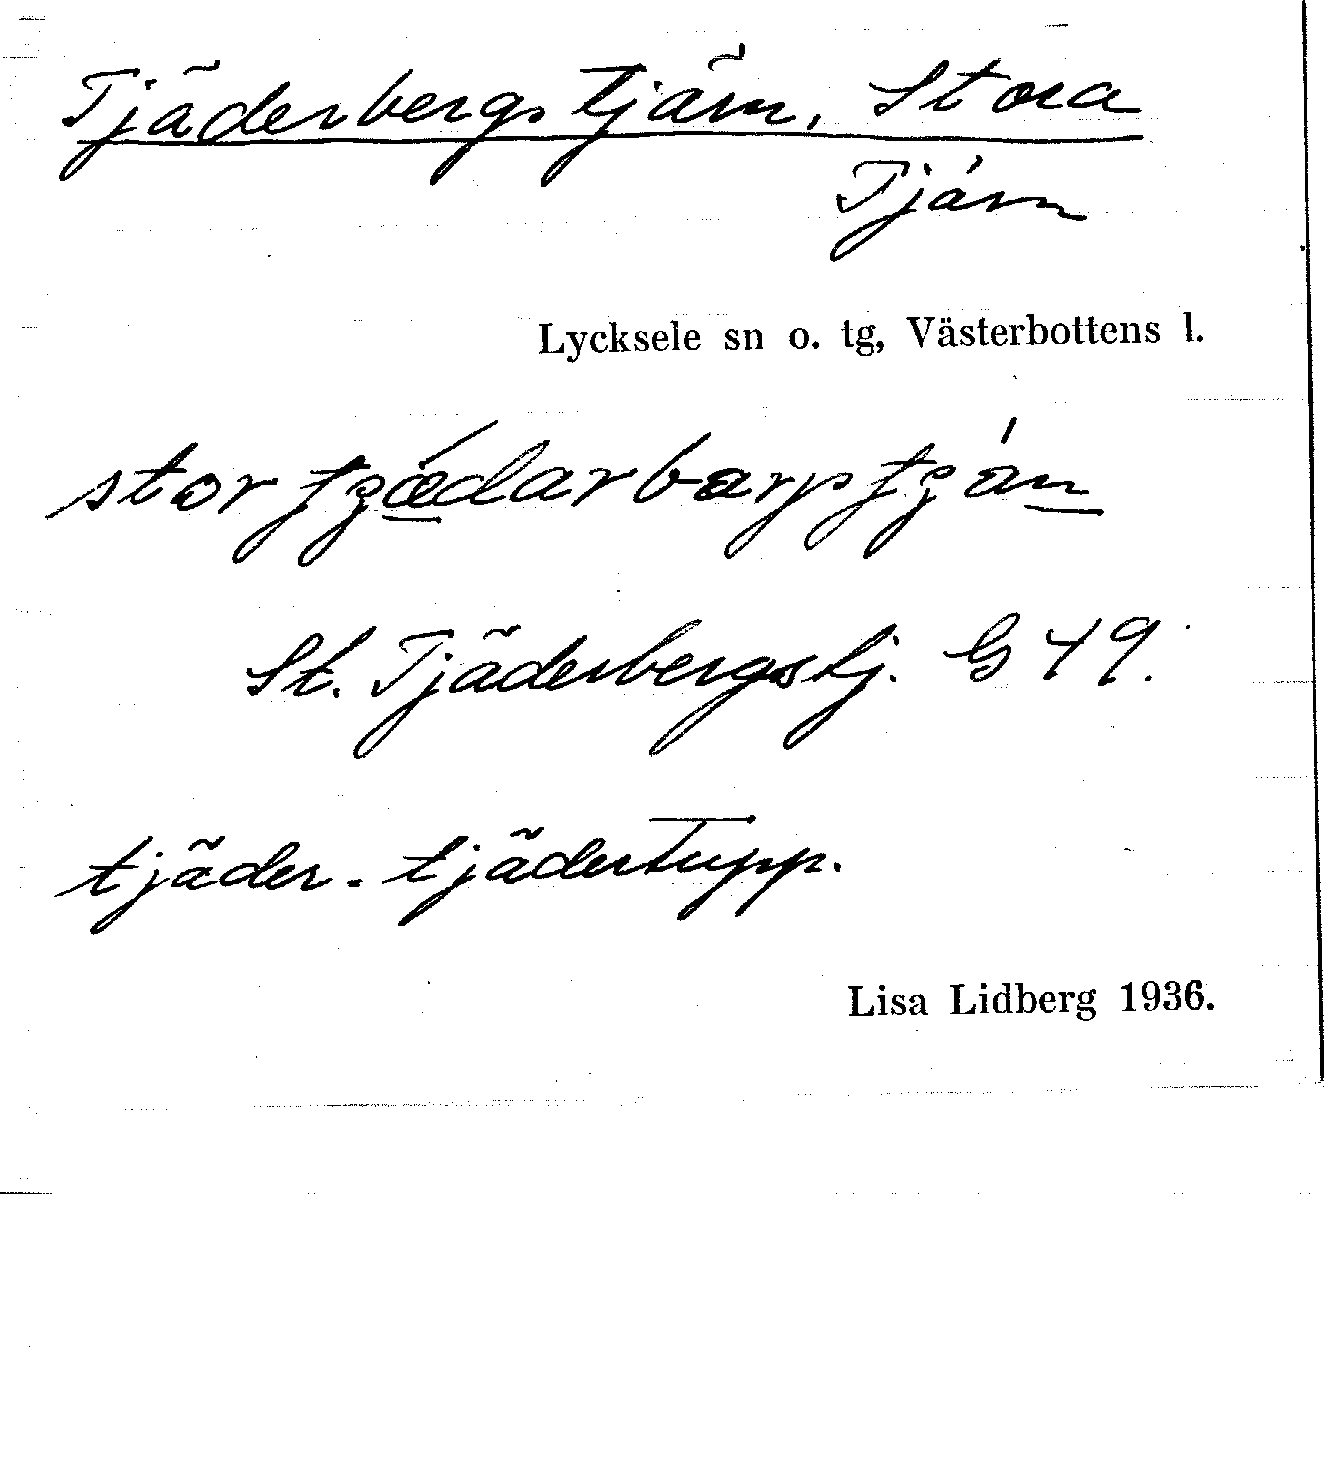 Tjäderbergstjärn, Stora
Tjärn
Lycksele sn o. tg, Västerbottens l.
St. Tjäderbergstj. G 49.
tjäder - tjädertupp.
Lisa Lidberg 1936.